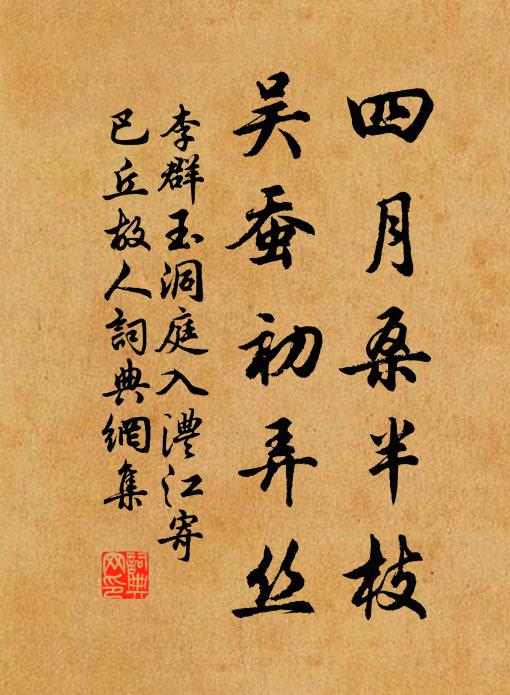 四月桑半枝
吴蚕初弄丝
李群玉洞庭入澧江寄
巴丘故人詞典網集
詞典网印